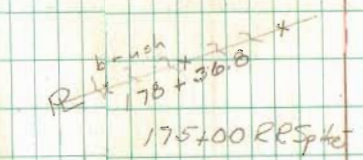 brush
PL 178+36.8
175+00 RR Spike